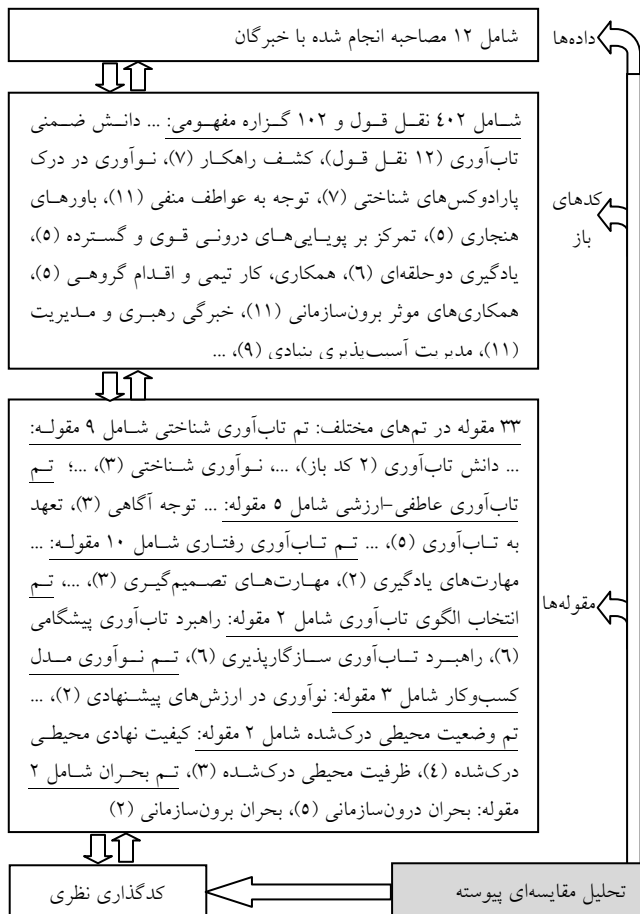 داده‌ها
شامل ۱۲ مصاحبه انجام شده با خبرگان
کدهای
باز
شـامل ٤۰۲ نقـل قـول و ۱۰۲ گـزاره مفهـومی: ... دانـش ضـمنی
تاب‌آوری (۱۲ نقل قول)، کشـف راهکـار (۷)، نـوآوری در درک
پارادوکس‌های شناختی (۷)، توجه به عواطف منفی (۱۱)، باورهـای
هنجاری (٥)، تمرکز بر پویـایی‌هـای درونـی قـوی و گسـترده (٥)،
یادگیری دوحلقه‌ای (٦)، همکاری، کار تیمی و اقـدام گروهـی (٥)،
همکاری‌های موثر برون‌سازمانی (۱۱)، خبرگی رهبـری و مـدیریت
(۱۱)، مدیریت آسیب‌پذیری بنیادی (۹)، ...
مقوله‌ها
۳۳ مقوله در تم‌های مختلف: تم تاب‌آوری شناختی شـامل ۹ مقولـه:
... دانش تاب‌آوری (۲ کد باز)، ...، نـوآوری شـناختی (۳)، ...؛ تـم
تاب‌آوری عاطفی-ارزشی شامل ٥ مقوله: ... توجه آگاهی (۳)، تعهد
به تـاب‌آوری (٥)، ... تـم تـاب‌آوری رفتـاری شـامل ۱۰ مقولـه: ...
مهارت‌های یادگیری (۲)، مهـارت‌هـای تصـمیم‌گیـری (۳)، ...، تـم
انتخاب الگوی تاب‌آوری شامل ۲ مقوله: راهبرد تاب‌آوری پیشگامی
(٦)، راهبـرد تـاب‌آوری سـازگارپذیری (٦)، تـم نـوآوری مـدل
کسب‌وکار شامل ۳ مقوله: نوآوری در ارزش‌های پیشـنهادی (۲)، ...
تم وضعیت محیطی درک‌شده شامل ۲ مقوله: کیفیت نهادی محیطـی
درک‌شده (٤)، ظرفیت محیطی درک‌شـده (۳)، تـم بحـران شـامل ۲
مقوله: بحران درون‌سازمانی (٥)، بحران برون‌سازمانی (۲)
تحلیل مقایسه‌ای پیوسته
کدگذاری نظری